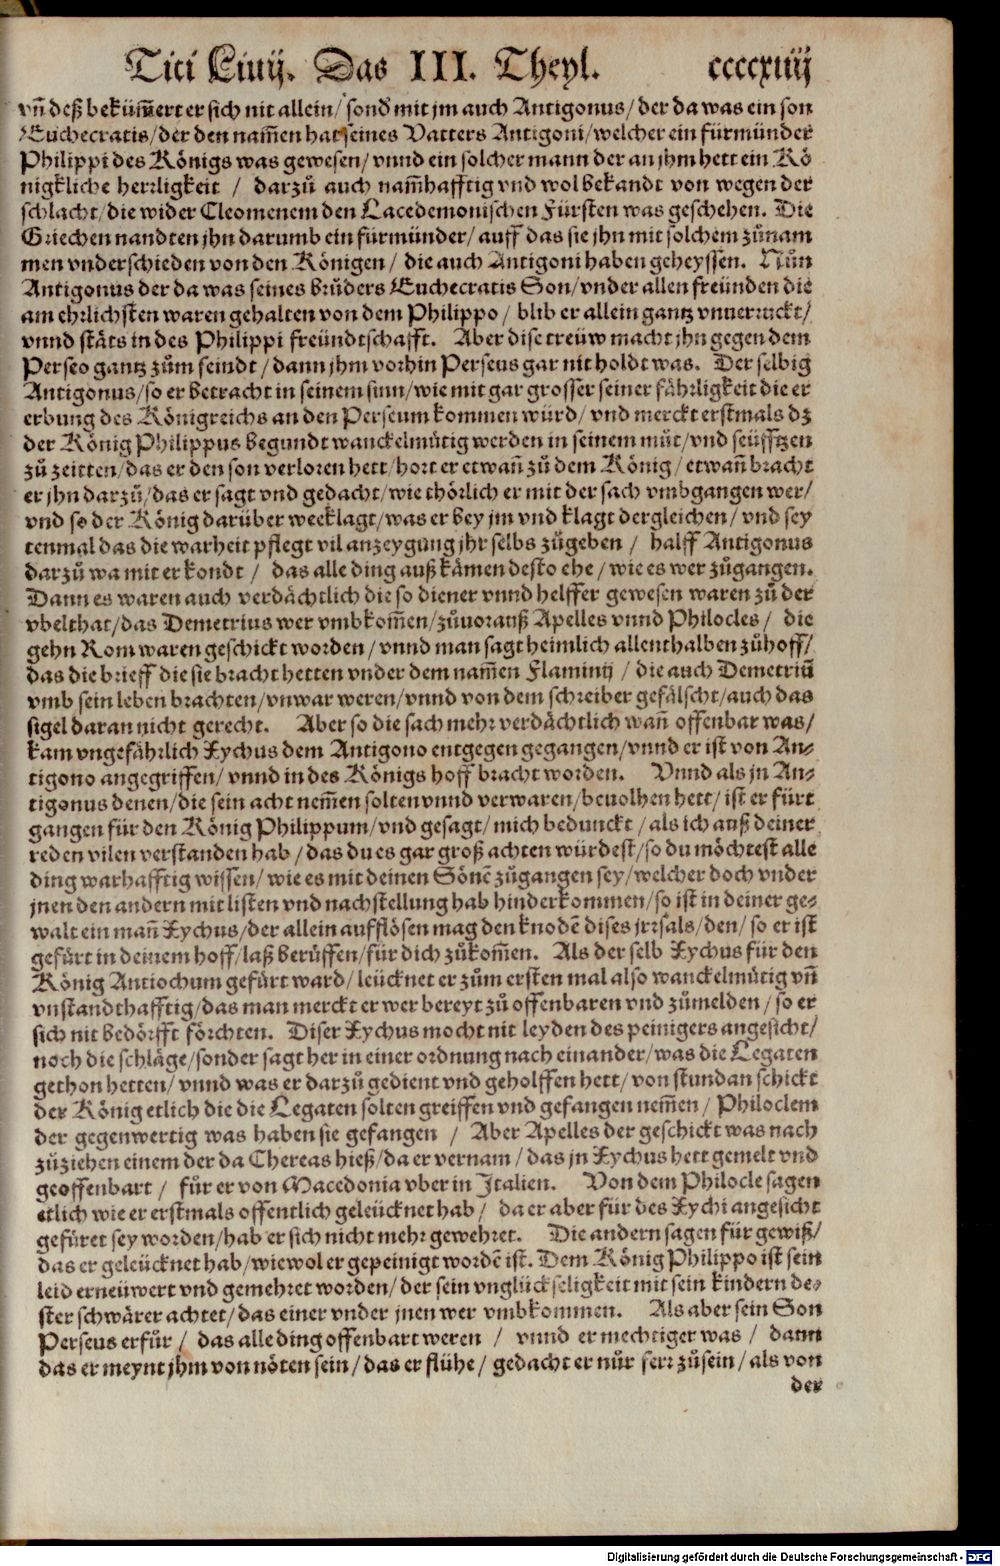 Titi Liuij. Das III. Theyl. ccccxiiij
vñ deß bekümert er sich nit allein/ sonð mit jm auch Antigonus/ der da was ein son
Euchecratis/ der den nam̃en hat seines Vatters Antigoni/ welcher ein fürmünder
Philippi des Königs was gewesen/ vnnd ein solcher mann der an jhm hett ein Kö
nigkliche herrligkeit / darzů auch nam̃hafftig vnd wol bekandt von wegen der
schlacht/ die wider Cleomenem den Lacedemonischen Fürsten was geschehen. Die
Griechen nandten jhn darumb ein fürmünder/ auff das sie jhn mit solchem zůnam
men vnderschieden von den Königen / die auch Antigoni haben geheyssen. Nůn
Antigonus der da was seines brůders Euchecratis Son/ vnder allen freünden die
am ehrlichsten waren gehalten von dem Philippo / blib er allein gantz vnuerruckt/
vnnd stäts in des Philippi freündtschafft. Aber dise treüw macht jhn gegen dem
Perseo gantz zům feindt / dann jhm vorhin Perseus gar nit holdt was. Der selbig
Antigonus/ so er betracht in seinem sinn/ wie mit gar grosser seiner fährligkeit die er
erbung des Königreichs an den Perseum kommen würd/ vnd merckt erstmals dz
der König Philippus begundt wanckelmůtig werden in seinem můt/ vnd seüfftzen
zů zeitten/ das er den son verloren hett/ hort er etwañ zů dem König/ etwañ bracht
er jhn darzů/ das er sagt vnd gedacht/ wie thörlich er mit der sach vmbgangen wer/
vnd so der König darüber weeklagt/ was er bey jm vnd klagt dergleichen/ vnd sey
tenmal das die warheit pflegt vil anzeygung jhr selbs zůgeben / halff Antigonus
darzů wa mit er kondt / das alle ding auß kämen desto ehe / wie es wer zůgangen.
Dann es waren auch verdächtlich die so diener vnnd helffer gewesen waren zů der
vbelthat/ das Demetrius wer vmbkom̃en/ zůuorauß Apelles vnnd Philocles / die
gehn Rom waren geschickt worden / vnnd man sagt heimlich allenthalben zůhoff/
das die brieff die sie bracht hetten vnder dem nam̃en Flaminij / die auch Demetriũ
vmb sein leben brachten/ vnwar weren/ vnnd von dem schreiber gefälscht/ auch das
sigel daran nicht gerecht. Aber so die sach mehr verdächtlich wañ offenbar was/
kam vngefährlich Xychus dem Antigono entgegen gegangen/ vnnd er ist von An-
tigono angegriffen/ vnnd in des Königs hoff bracht worden. Vnnd als jn An-
tigonus denen/ die sein acht nem̃en solten vnnd verwaren/ beuolhen hett/ ist er fürt
gangen für den König Philippum/ vnd gesagt/ mich bedunckt / als ich auß deiner
reden vilen verstanden hab / das du es gar groß achten würdest/ so du möchtest alle
ding warhafftig wissen/ wie es mit deinen Sönẽ zůgangen sey/ welcher doch vnder
jnen den andern mit listen vnd nachstellung hab hinderkommen/ so ist in deiner ge-
walt ein mañ Xychus/ der allein aufflösen mag den knodẽ dises jrrsals/ den/ so er ist
gefůrt in deinem hoff/ laß berůffen/ für dich zůkom̃en. Als der selb Xychus für den
König Antiochum gefůrt ward/ leücknet er zům ersten mal also wanckelmůtig vñ
vnstandthafftig/ das man merckt er wer bereyt zů offenbaren vnd zůmelden / so er
sich nit bedörfft förchten. Diser Xychus mocht nit leyden des peinigers angesicht/
noch die schläge/ sonder sagt her in einer ordnung nach einander/ was die Legaten
gethon hetten/ vnnd was er darzů gedient vnd geholffen hett/ von stundan schickt
der König etlich die die Legaten solten greiffen vnd gefangen nem̃en / Philoclem
der gegenwertig was haben sie gefangen / Aber Apelles der geschickt was nach
zůziehen einem der da Chereas hieß/ da er vernam / das jn Xychus hett gemelt vnd
geoffenbart / fůr er von Macedonia vber in Italien. Von dem Philocle sagen
etlich wie er erstmals offentlich geleücknet hab / da er aber für des Xychi angesicht
gefüret sey worden/ hab er sich nicht mehr gewehret. Die andern sagen für gewiß/
das er geleücknet hab/ wiewol er gepeinigt wordẽ ist. Dem König Philippo ist sein
leid erneüwert vnd gemehret worden/ der sein vnglückseligkeit mit sein kindern de-
ster schwärer achtet/ das einer vnder jnen wer vmbkommen. Als aber sein Son
Perseus erfůr / das alle ding offenbart weren / vnnd er mechtiger was / dann
das er meynt jhm von nöten sein/ das er flühe/ gedacht er nůr ferr zůsein/ als von
der
Digitalisierung gefördert durch die Deutsche Forschungsgemeinschaft - DFG